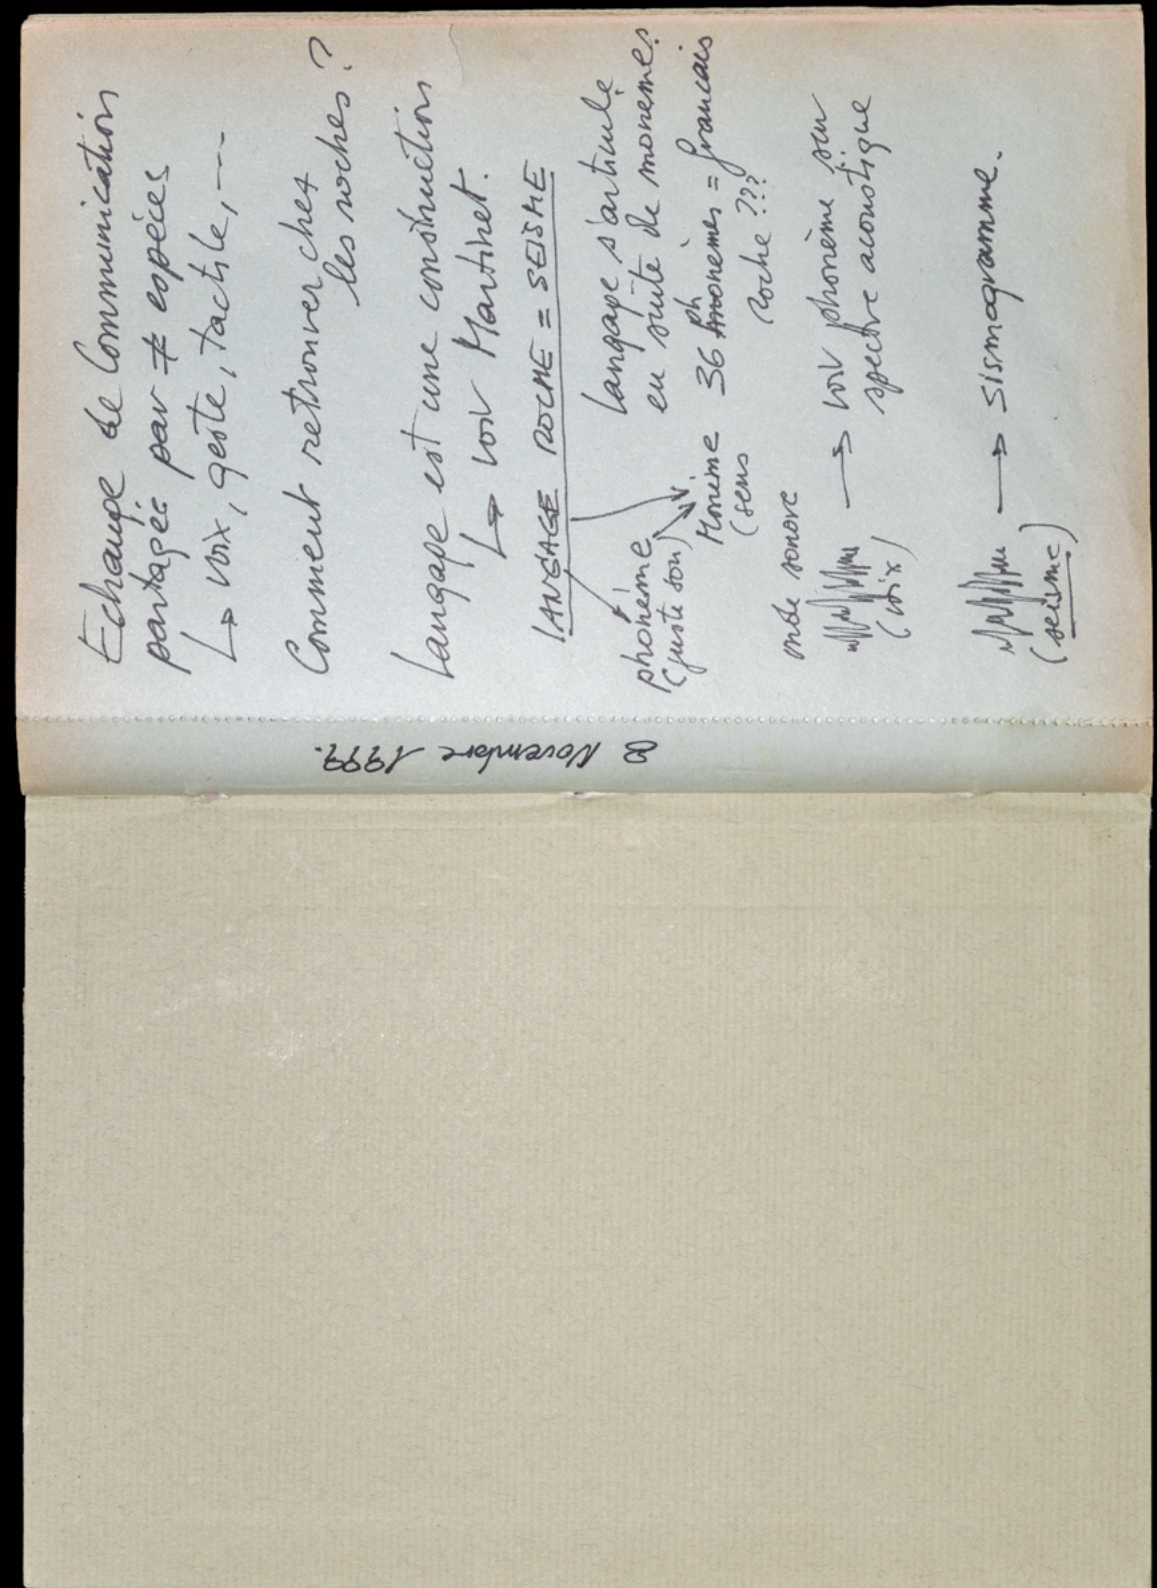 8 Novembre 1999.
Echange de Communication
partagée par ≠ espèces
↳ voix, geste, tactile, ----
Comment retrouver chez
les roches ?
Langage est une construction
↳ voir Martinet.
LANGAGE ROCHE = SEISME
Langage s'articule
en suite de monemes.
phonème
(juste son)
Monème
(sens
36 phonèmes = francais
Roche ???
onde sonore
(voix)
→ voir phonème sur
spectre acoustique
(seisme)
→ sismogramme.